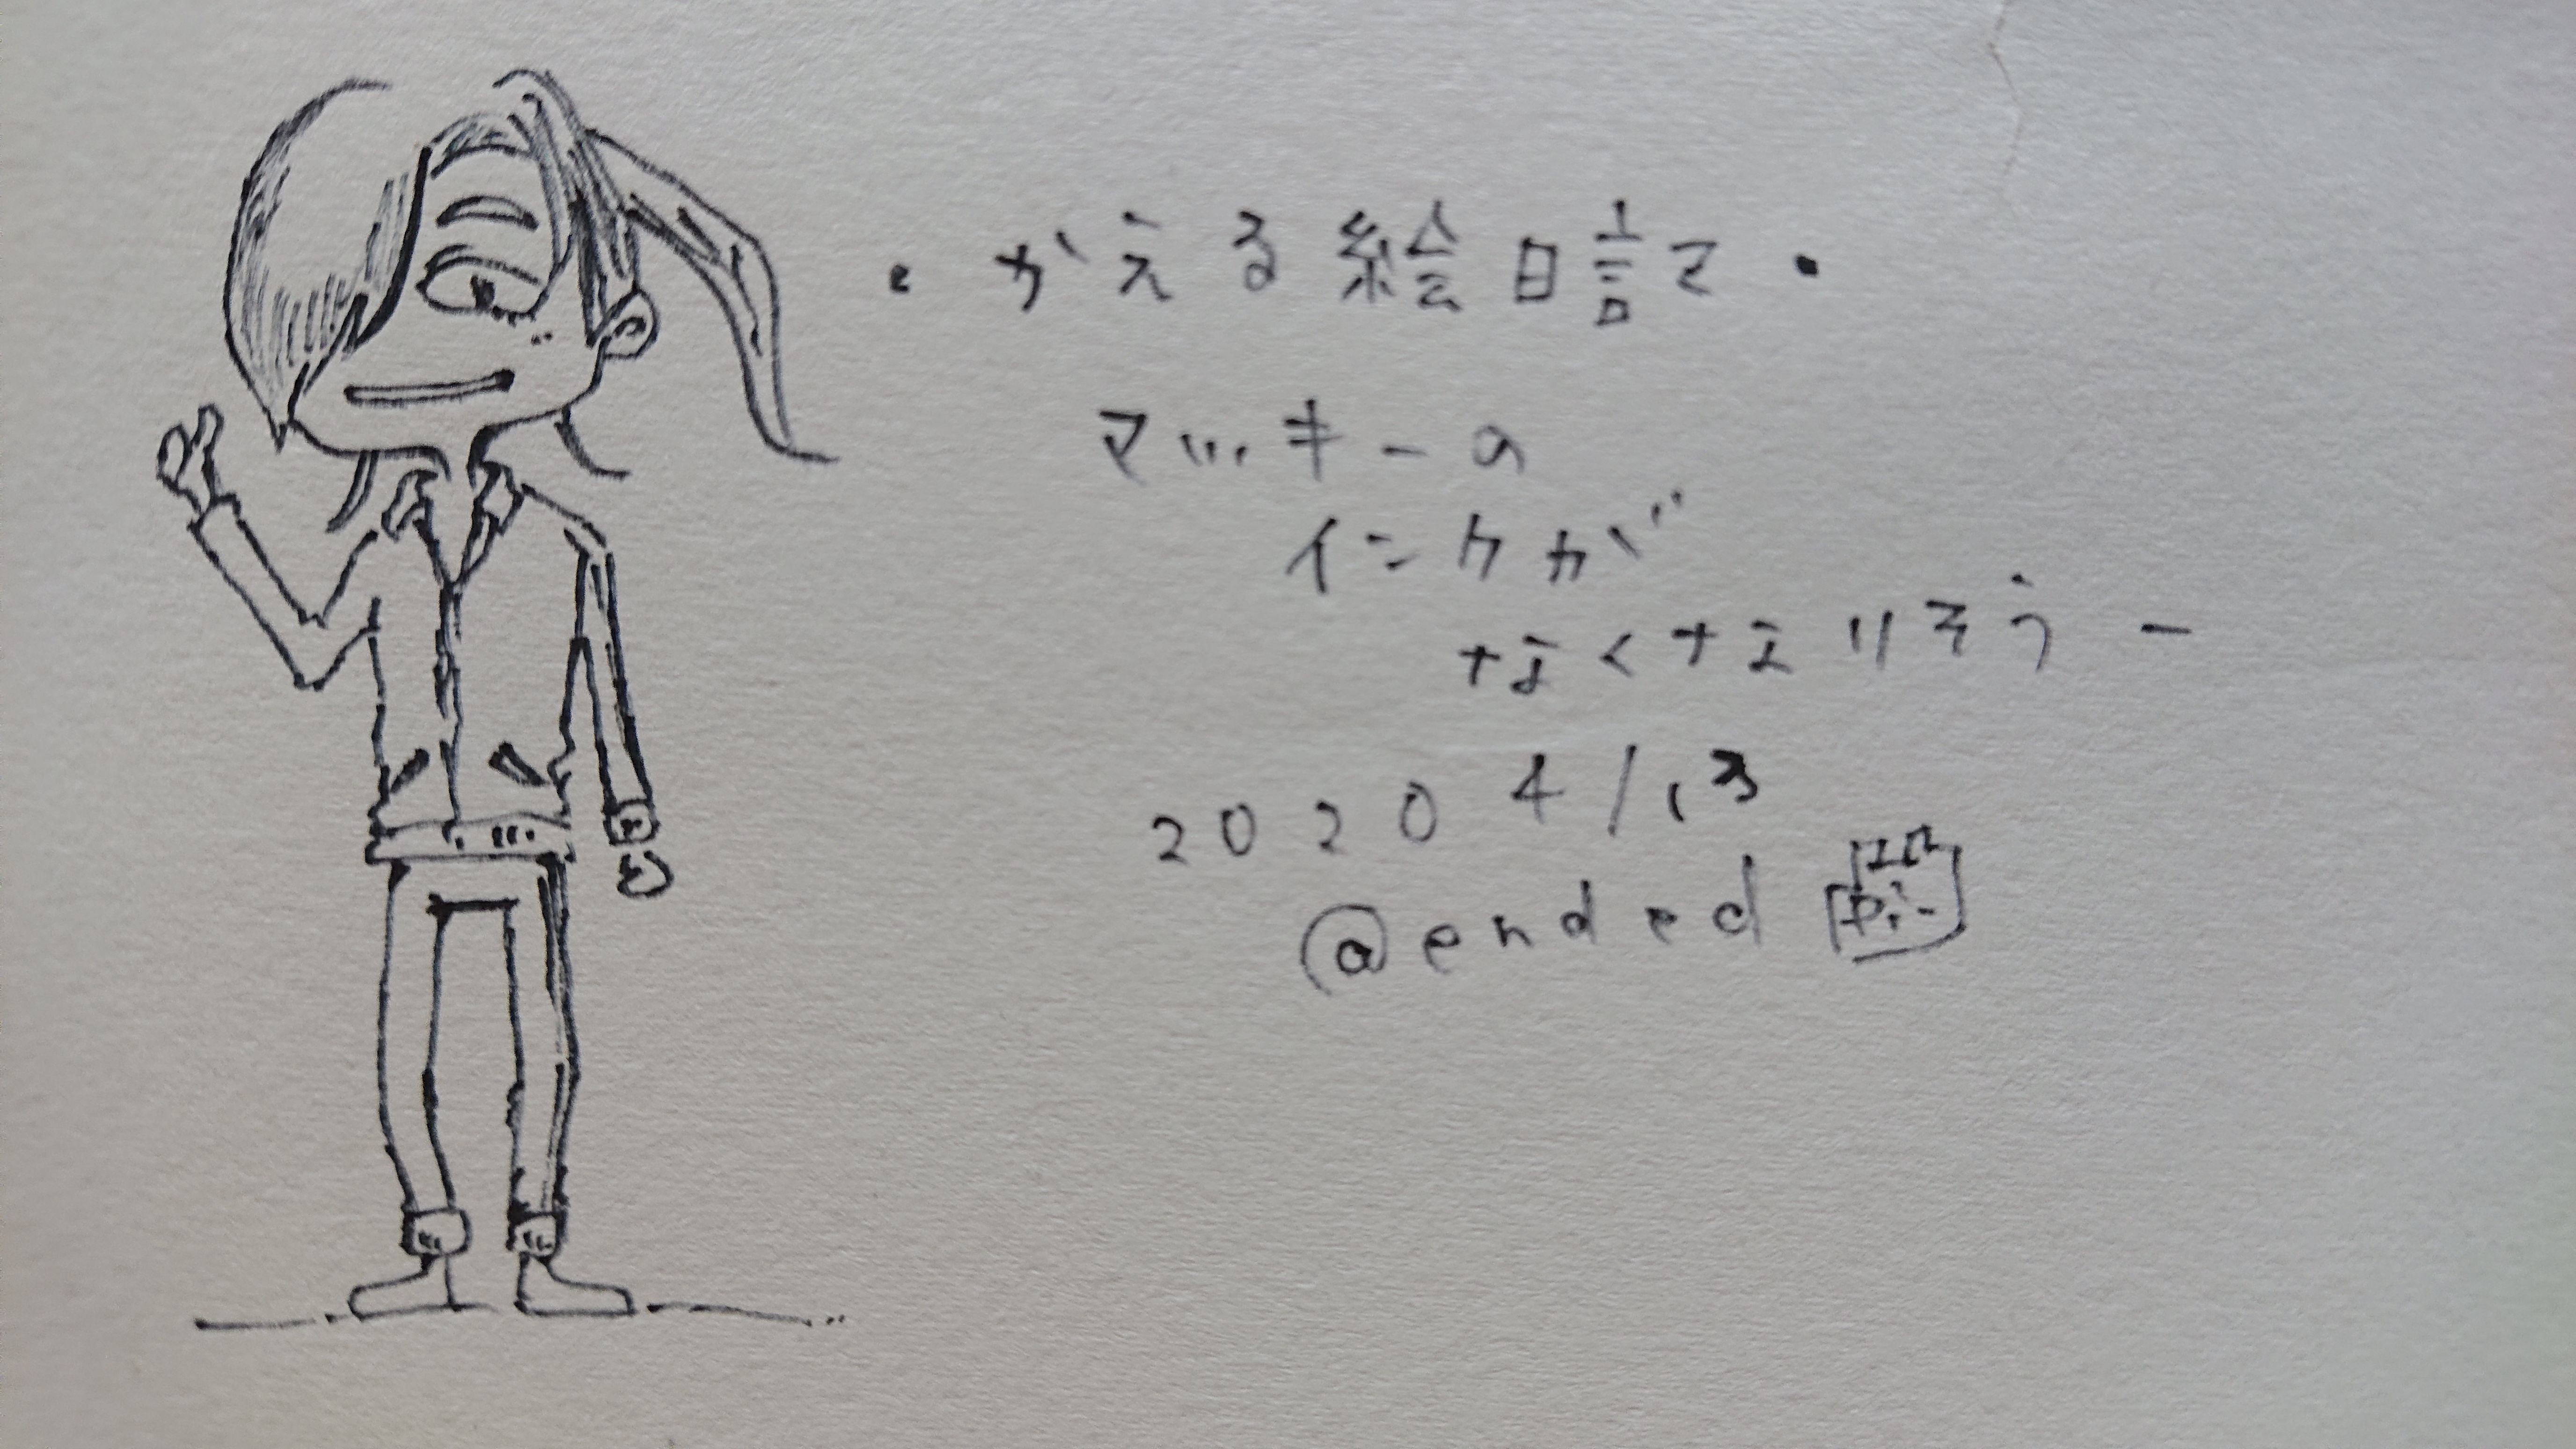 ・かえる絵日記・
マッキーの
インクが
なくなりそうー
2020 4/13
@ended